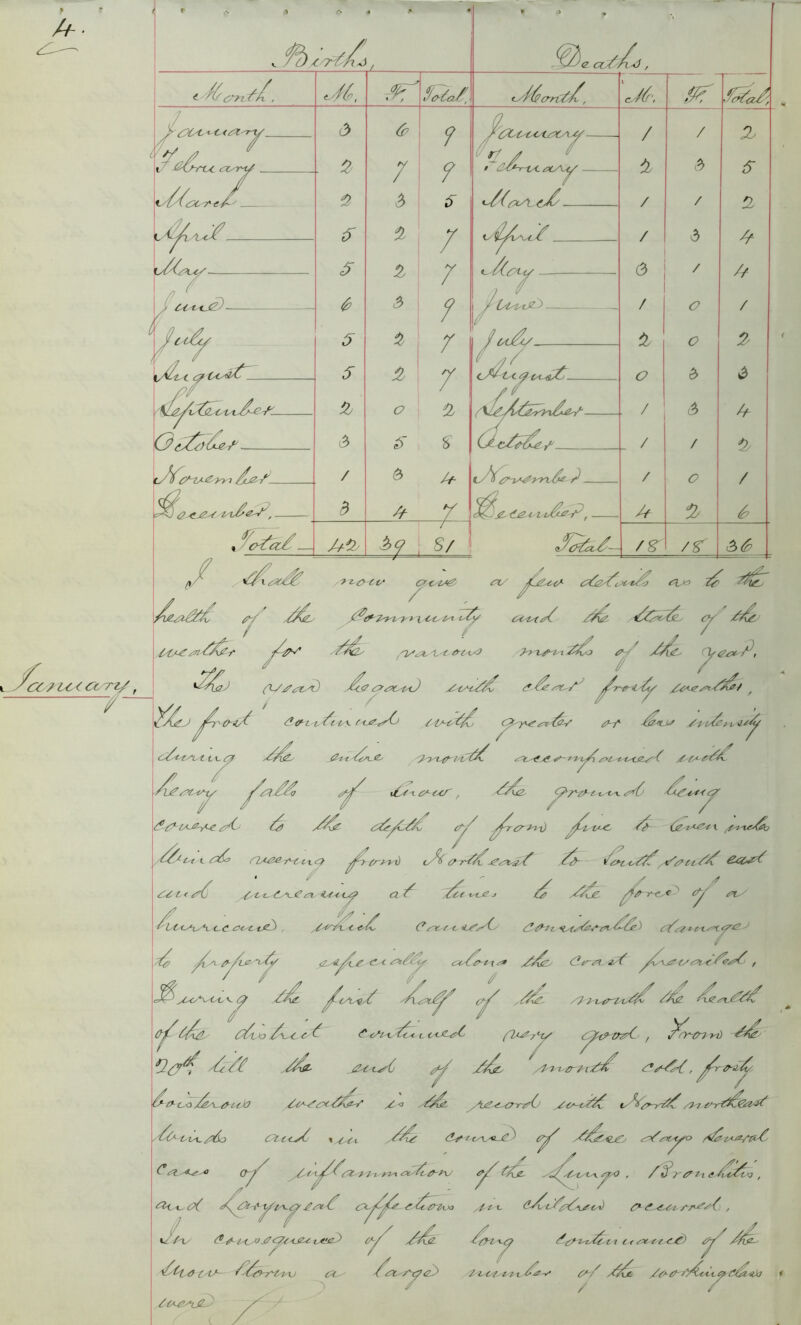 4.
Births, Deaths,
Month, M, F, Total, Month, M, F, Total,
January 3 6 9 January 1 1 2
February 2 7 9 February 2 3 5
March 2 3 5 March 1 1 2
April 5 2 7 April 1 3 4
May 5 2 7 May 3 1 4
June 6 3 9 June 1 0 1
July 5 2 7 July 2 0 2
August 5 2 7 August 0 3 3
September 2 0 2 September 1 3 4
October 3 5 8 October 1 1 2
November 1 3 4 November 1 0 1
December, 3 4 7 December, 4 2 6
Total 42 39 81 Total 18 18 36
I shall now give a few details as to the
health of the Community and the State of the
weather for the various months of the year,
January, The year began with clear frosty weather,
The frost continued with greater or less intensity
during the entire month accompanied with
heavy falls of Snow, the ground being
Covered to the depth of from five to Seven inches
Winds veering from North east to South South east
and increasing at times to the force of a
hurricane, which Caused considerable damage
to property especially along the Coast prevailed,
During the first half of the month the health
of the district continued very good, From the
20th till the end of the month Cold, frosty
boisterous weather is the record with North northeast
Winds and in the Course of these days Several
Cases of inflammation of the Lungs, Bronchitis,
and Laryngeal affections in children occurred,
In consequence of the long continuance of the
Snow Storm a large number of the working class
were